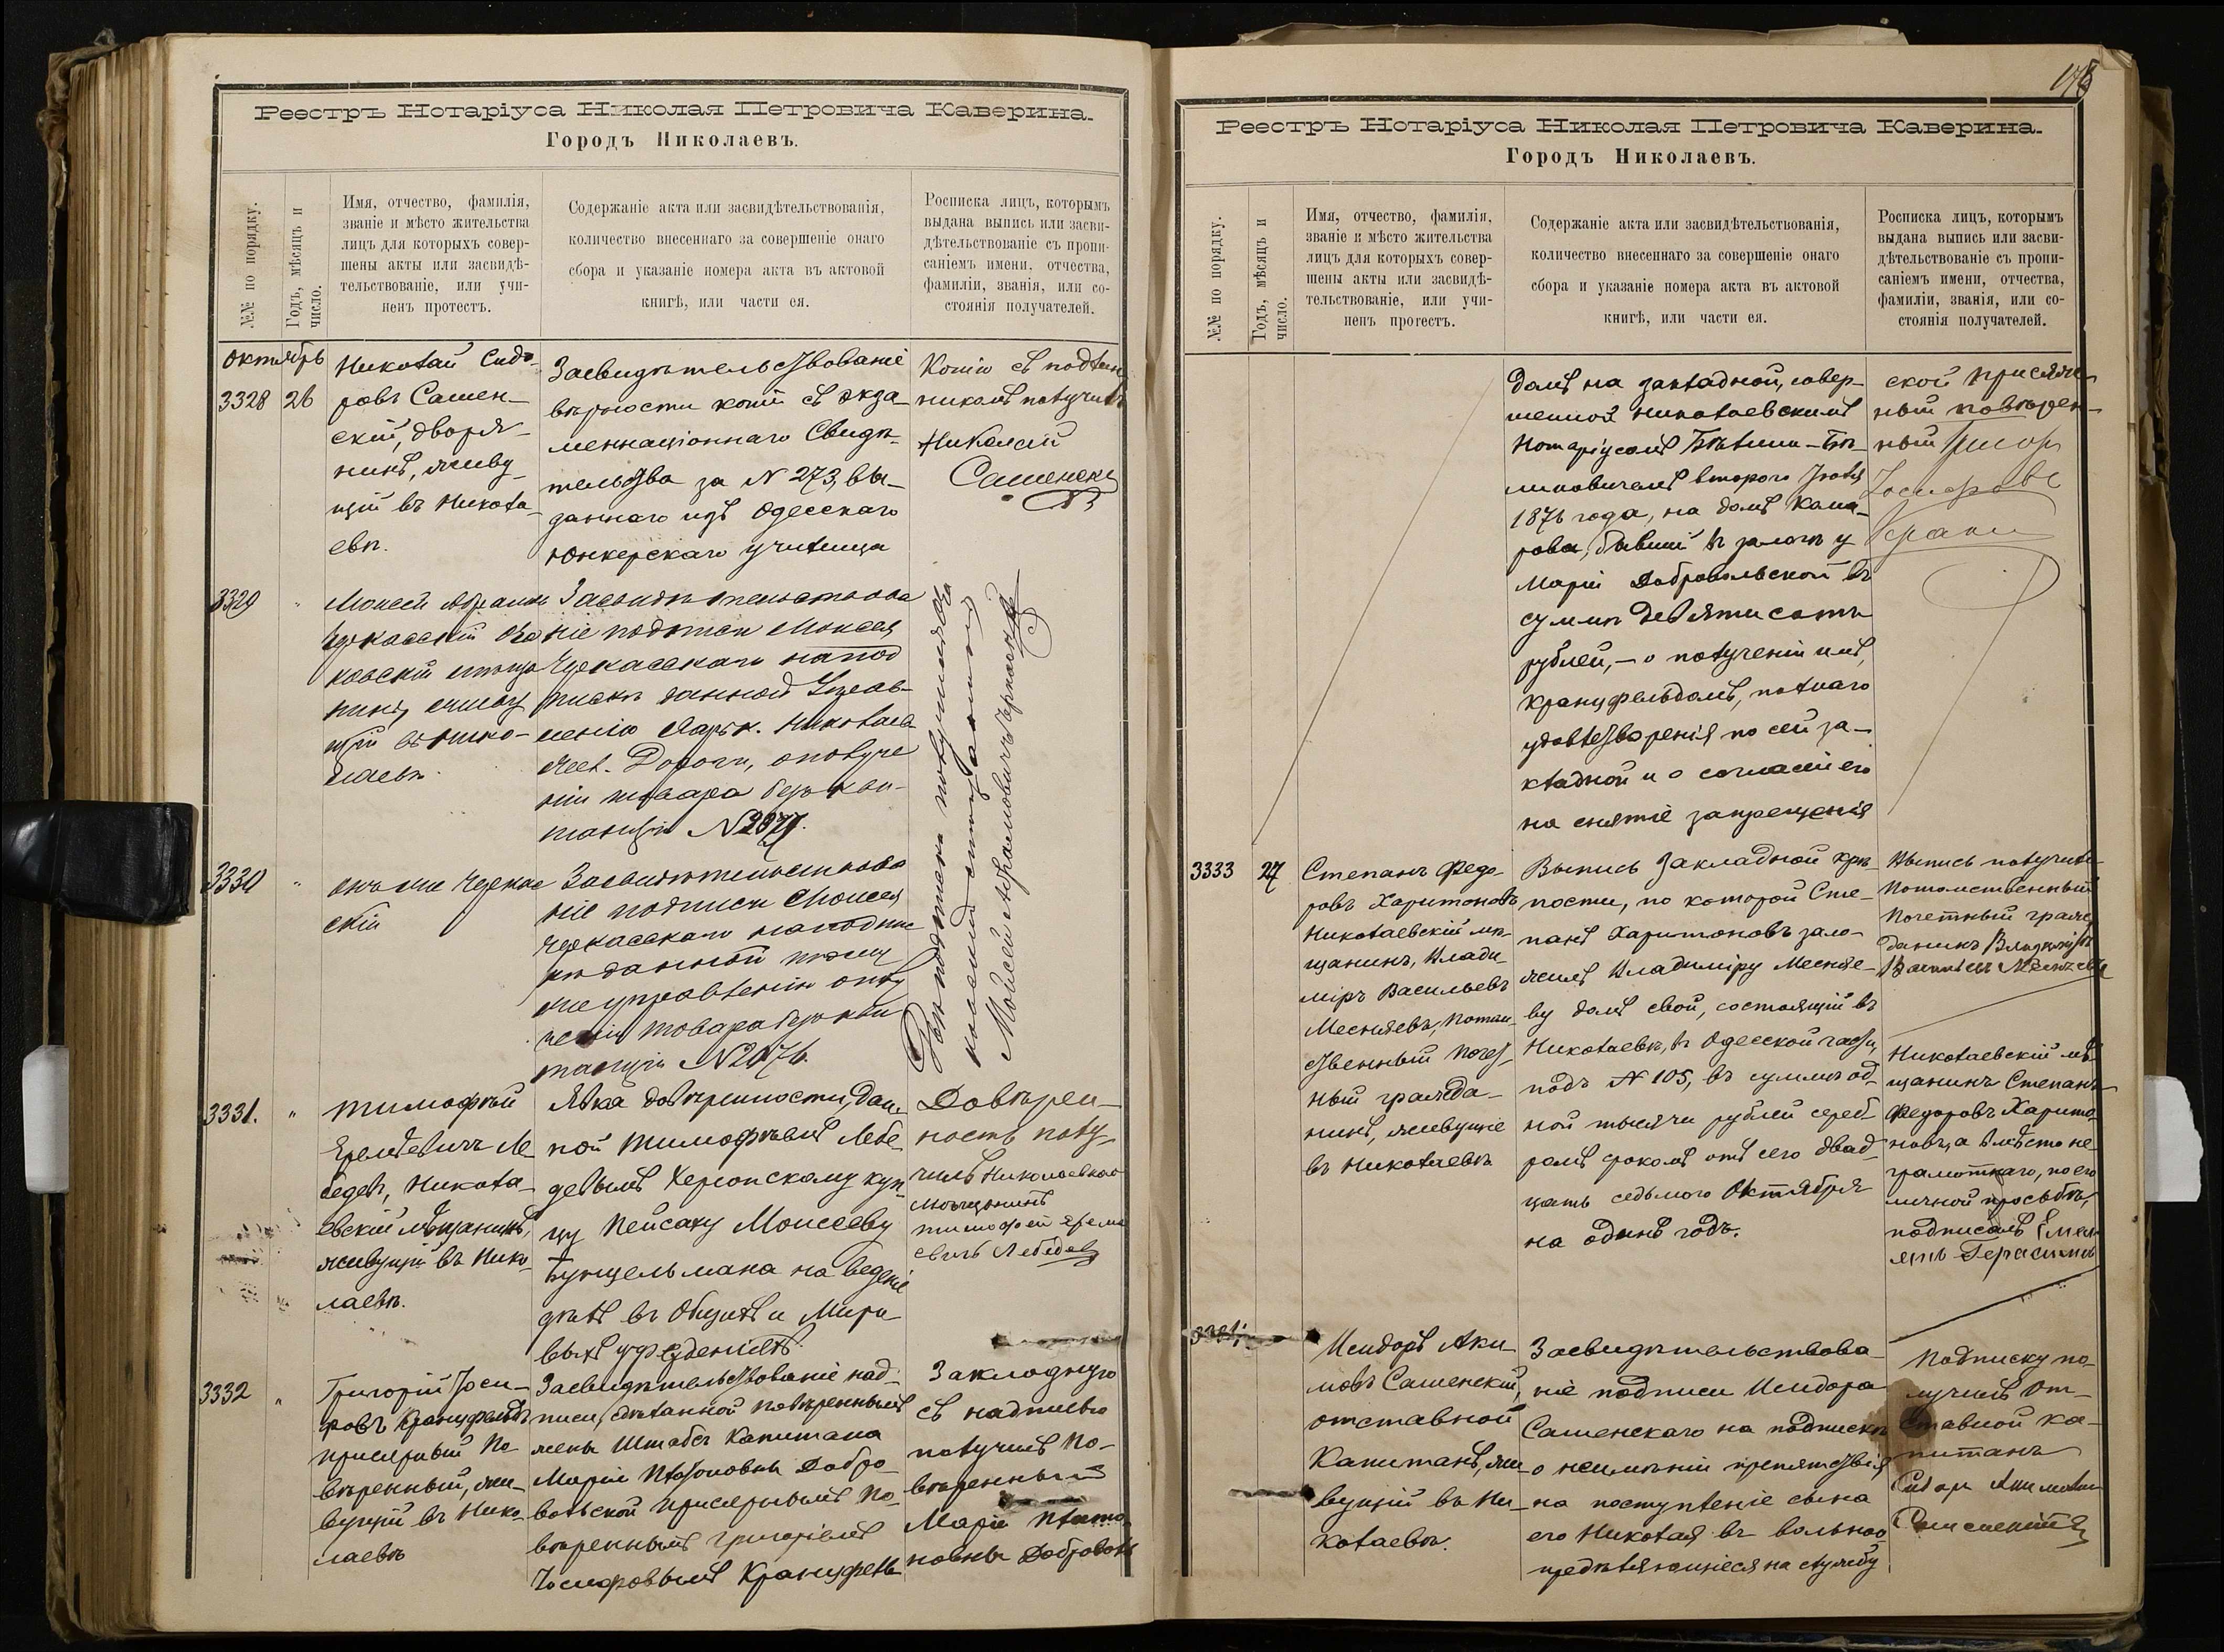 Реестръ Нотаріуса Николая Петровича Каверина.
Городъ Николаевъ.
№№ по порядку.
Годъ, мѣсяцъ и
число.
Имя, отчество, фамилія,
званіе и мѣсто жительства
лицъ для которыхъ совер-
шены акты или засвидѣ-
тельствованіе, или учи-
ненъ протестъ.
Содержаніе акта или засвидѣтельствованія,
количество внесеннаго за совершеніе онаго
сбора и указаніе номера акта въ актовой
книгѣ, или части ея.
Росписка лицъ, которымъ
выдана выпись или засви-
дѣтельствованіе съ пропи-
саніемъ имени, отчества,
фамиліи, званія, или со-
стоянія получателей.
Октябрь
3328 26
Николай Сидо-
ровъ Сашен-
скій, дворя-
нинъ, живу
щій въ Никола-
евѣ.
Засвидѣтельствованіе
вѣрности копіи съ экза-
менаціоннаго Свидѣ-
тельства за № 273, вы-
даннаго изъ Одесскаго
юнкерскаго училища
Копію съ подлин
никомъ получилъ
Николай
Сашенскій
3329 "
Моисей Абрамов
Черкасскій Оча
ковскій мѣща
нинъ, живу
щій въ Нико-
лаевѣ.
Засвидѣтельствова
ніе подписи Моисея
Черкасскаго на под
пискѣ данной Управ-
ленію Харьк. Николаев
Жел. Дороги, о получе
ніи товара безъ кви-
танціи № 2877.
3330 "
онъ же Черкас
скій
Засвидѣтельствова
ніе подписи Моисея
Черкасскаго на подпис
кѣ данной тому
же управленію о полу
ченіи товара безъ кви
танціи № 2876.
Двѣ подписки получилъ
Моисей Абрамовичъ Черкасскій
3331. "
Тимофѣй
Еремѣевичъ Ле-
бедевъ, Никола-
евскій мѣщанинъ,
живущій въ Нико-
лаевѣ.
Явка довѣренности, дан-
ной Тимофѣемъ Лебе-
девымъ Херсонскому куп-
цу Пейсаху Моисееву
Бунцельмана на веденіе
дѣлъ въ Общихъ и Миро-
выхъ учрежденіяхъ.
Довѣрен-
ность полу-
чилъ Николаевскій
мѣщанинъ
Тимофей Ереме
евичъ Лебедевъ
3332 "
Григорій Іоси-
фовъ Кранцфельдъ
присяжный По-
вѣренный, жи-
вущій въ Нико-
лаевѣ
Засвидѣтельствованіе над-
писи, сдѣланной повѣреннымъ
жены Штабсъ Капитана
Маріи Платоновны Добро-
вольской присяжнымъ По-
вѣреннымъ Григоріемъ
Іосифовымъ Кранцфель-
Закладную
съ надписью
получилъ По-
вѣренный
Маріи Плато-
новны Добровольс
178
Реестръ Нотаріуса Николая Петровича Каверина.
Городъ Николаевъ.
№№ по порядку.
Годъ, мѣсяцъ и
число.
Имя, отчество, фамилія,
званіе и мѣсто жительства
лицъ для которыхъ совер-
шены акты или засвидѣ-
тельствованіе, или учи-
ненъ протестъ.
Содержаніе акта или засвидѣтельствованія,
количество внесеннаго за совершеніе онаго
сбора и указаніе номера акта въ актовой
книгѣ, или части ея.
Росписка лицъ, которымъ
выдана выпись или засви-
дѣтельствованіе съ пропи-
саніемъ имени, отчества,
фамиліи, званія, или со-
стоянія получателей.
домъ на закладной, совер-
шенной Николаевскимъ
Нотаріусомъ
линовичемъ второго Іюля
1876 года, на домъ Кома-
рова, бывшій въ залогѣ у
Маріи Добровольской въ
суммѣ девятисотъ
рублей, – о полученіи имъ,
Кранцфельдомъ, полнаго
удовлетворенія по сей за-
кладной и о согласіи его
на снятіе запрещенія
ской присяж-
ный повѣрен-
ный Григор
Іосифовъ
Кранц
3333 27
Степанъ Федо-
ровъ Харитоновъ
Николаевскій мѣ-
щанинъ, Влади-
міръ Васильевъ
Месняевъ, Потом-
ственный Почет-
ный гражда-
нинъ, живущіе
въ Николаевѣ
Выпись закладной крѣ-
пости, по которой Сте-
панъ Харитоновъ зало-
жилъ Владиміру Месняе-
ву домъ свой, состоящій въ
Николаевѣ, въ Одесской части,
подъ № 105, въ суммѣ од-
ной тысячи рублей сереб-
ромъ срокомъ отъ сего двад-
цать седьмого Октября
на одинъ годъ.
Выпись получилъ
Потомственный
Почетный граж
данинъ Владиміръ
Васильевъ Месняевъ
Николаевскій мѣ-
щанинъ Степанъ
Федоровъ Харито-
новъ, а вмѣсто не-
грамотнаго, по его
личной просьбѣ,
подписалъ Емел-
янъ Герасимов
3334
Исидоръ Аки-
мовъ Сашенскій,
отставной
Капитанъ, жи-
вущій въ Ни-
колаевѣ.
Засвидѣтельствова-
ніе подписи Исидора
Сашенскаго на подпискѣ
о неимѣніи препятствія
на поступленіе сына
его Николая въ вольно-
предѣляющіеся на службу
Подписку по-
лучилъ От-
ставной Ка-
питанъ
Сидор Акимовъ
Сашенскій